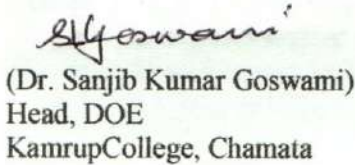 SKGoswami
(Dr. Sanjib Kumar Goswami)
Head, DOE
KamrupCollege, Chamata